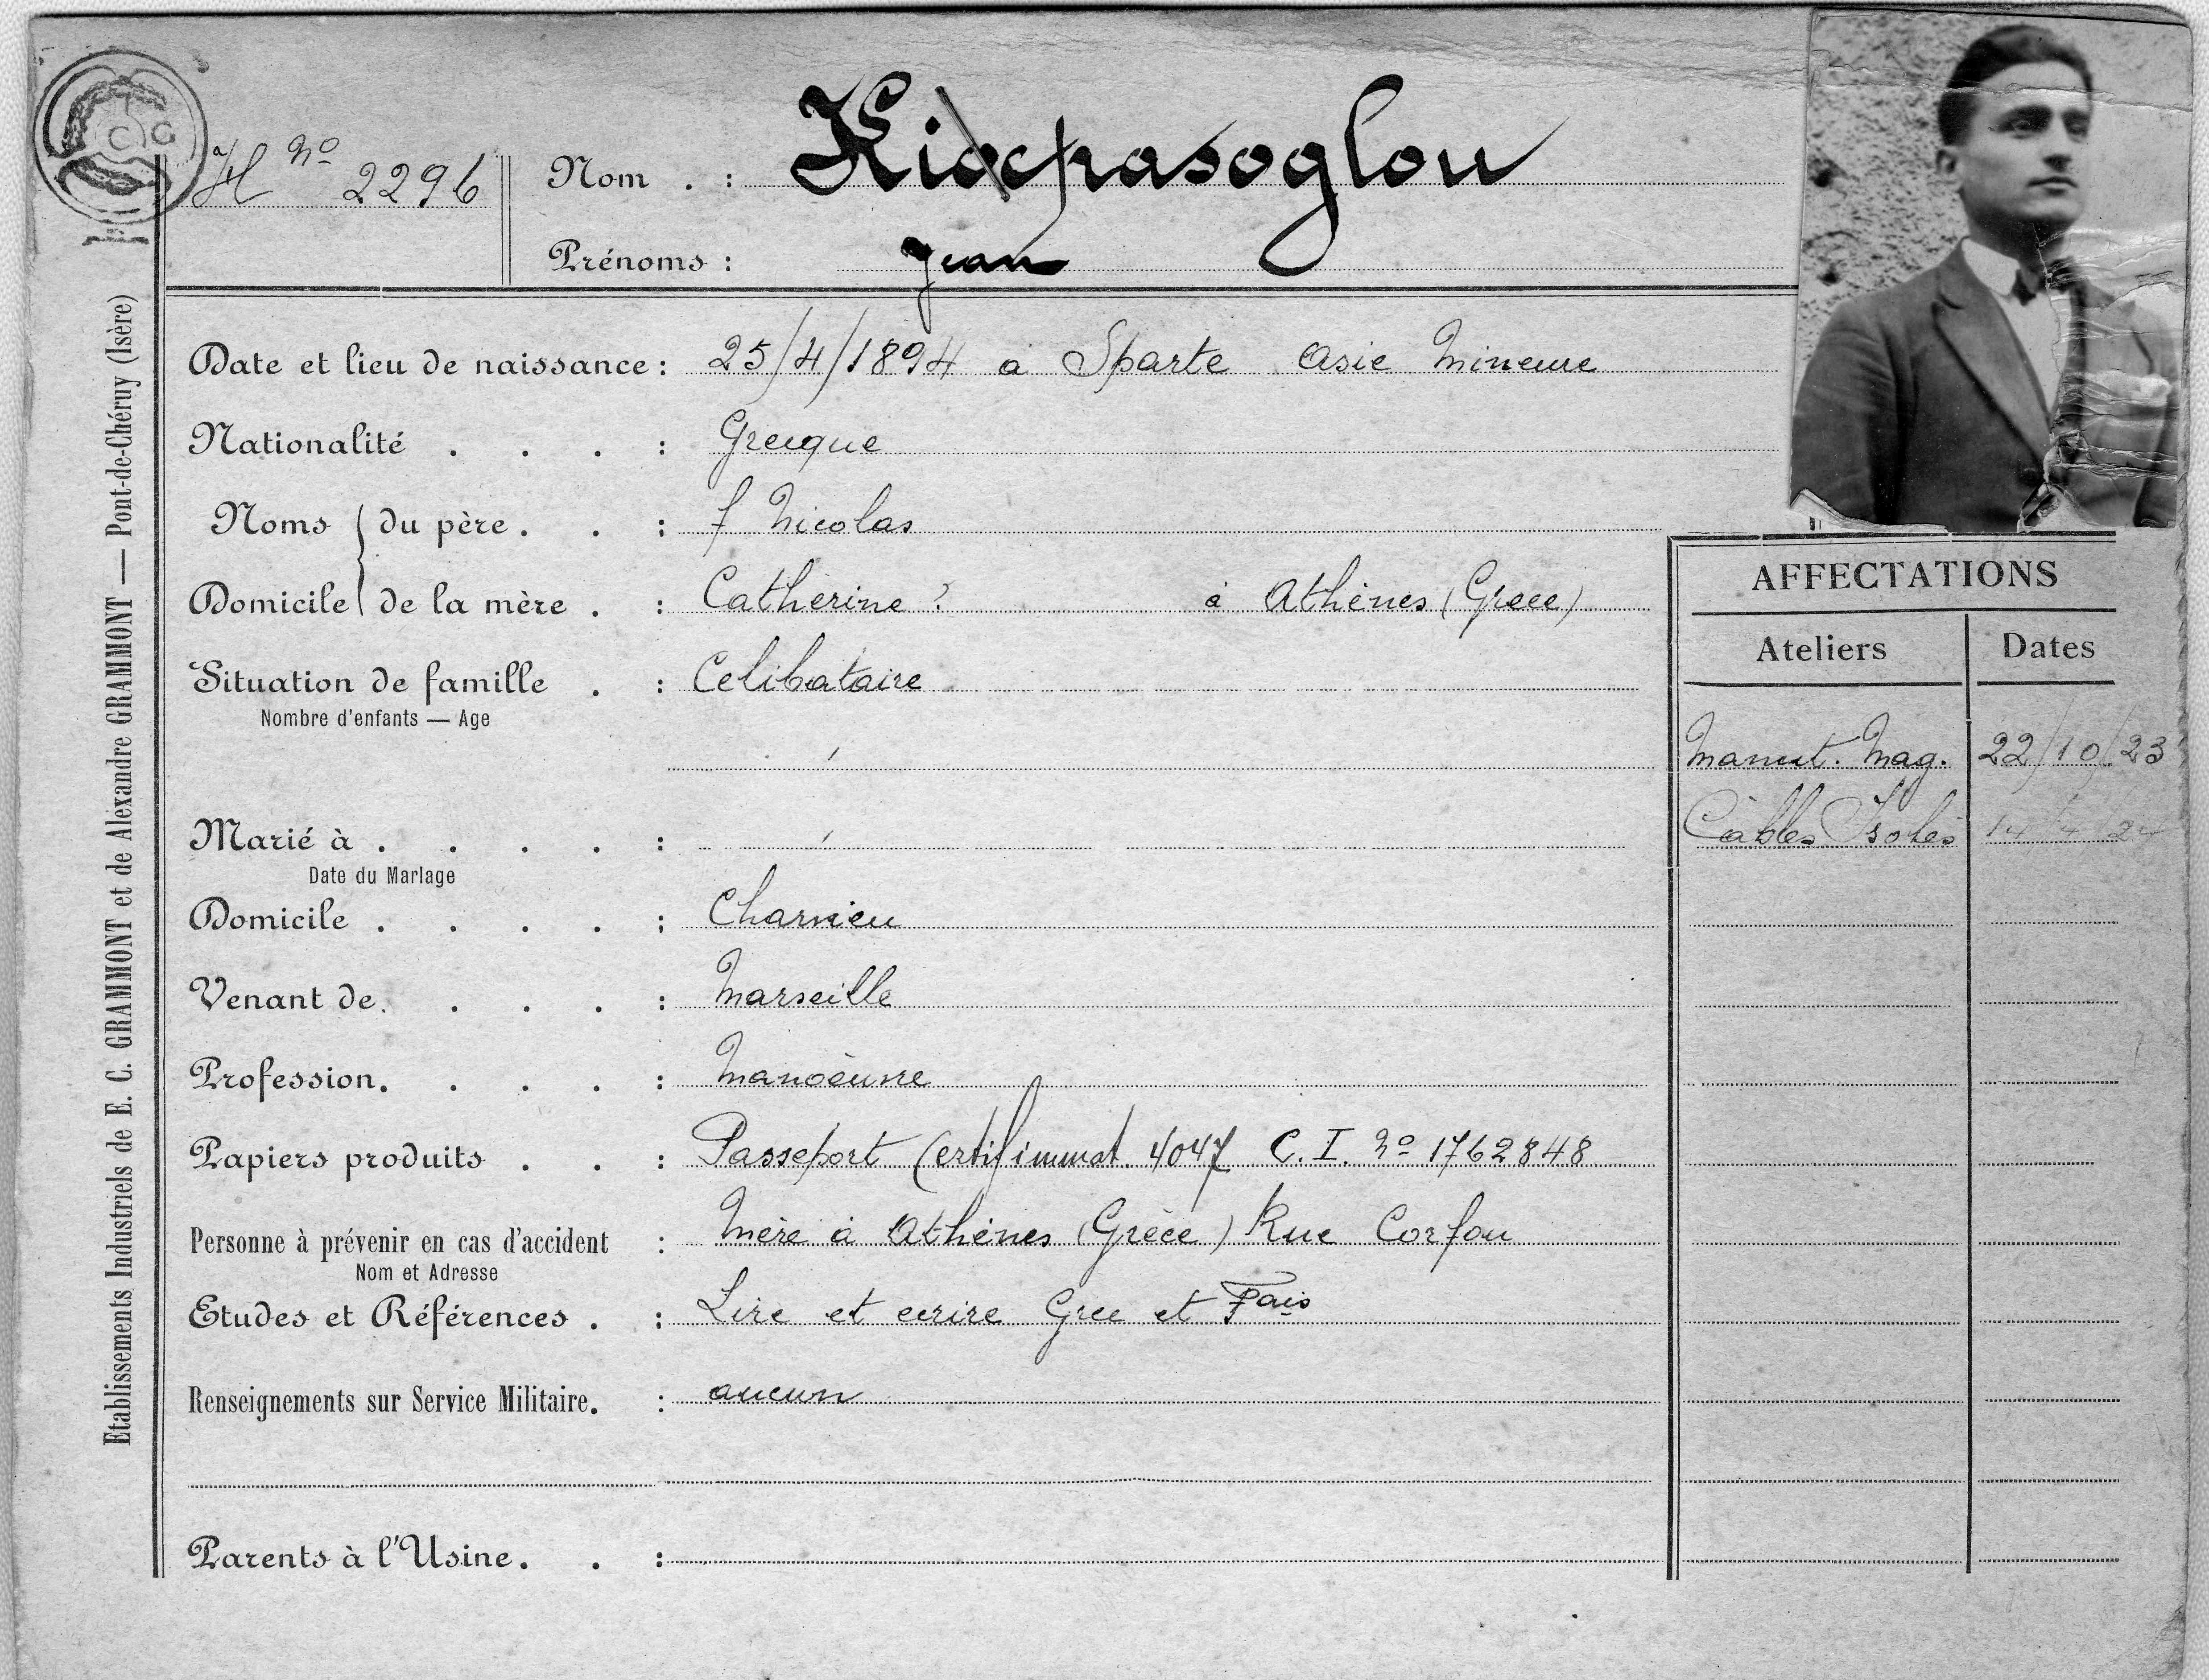 H No 2296
Nom . : Kiocpasoglou
Prénoms : Jean
Date et lieu de naissance : 25/4/1894 a Sparte Asie Mineure
Nationalité . . . : Grecque
Noms du père . . : f Nicolas
Domicile de la mère . : Catherine ? à Athènes (Grece)
Situation de famille . : Celibataire
Nombre d'enfants — Age
Marié à . . . . :
Date du Mariage
Domicile . . . . : Charvieu
Venant de. . . . : Marseille
Profession. . . . : Manoeuvre
Papiers produits . . : Passeport Certif immat. 4047 C. I. No 1762848
Personne à prévenir en cas d'accident : Mère à Athènes (Grèce) Rue Corfou
Nom et Adresse
Etudes et Références . : Lire et ecrire Grec et Fais
Renseignements sur Service Militaire. : aucun
Parents à l'Usine. . :
AFFECTATIONS
Ateliers Dates
Manut. Mag. 22/10/23
Câbles Isolés 14/4/24
Etablissements Industriels de E. C. GRAMMONT et de Alexandre GRAMMONT — Pont-de-Chéruy (Isère)